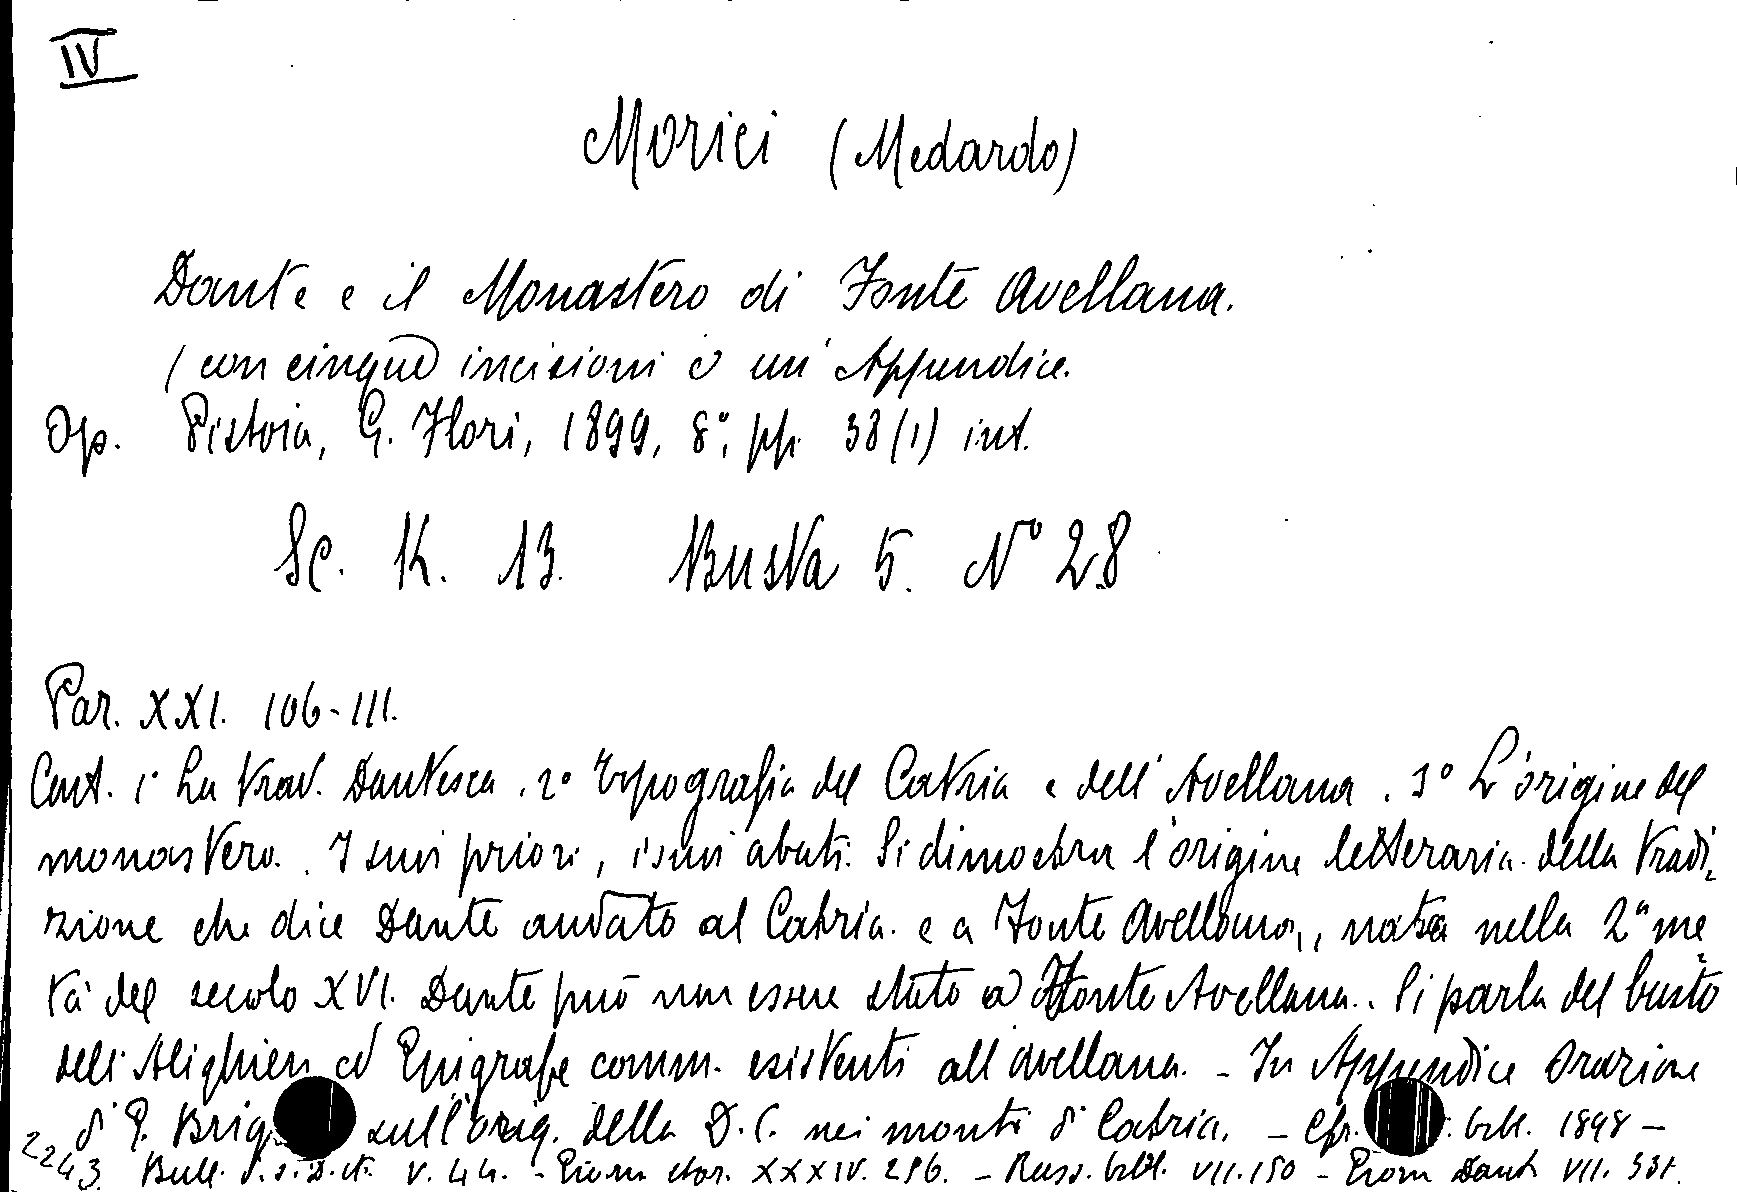 IV
Morici (Medardo)
Dante e il Monastero di Fonte Avellana.
(con cinque incisioni e un' Appendice.
Op. Pistoia, G. Flori, 1899, 8°, pp. 38 (1) int.
Sc. K. 13. Busta 5. N° 28
Par. XXI. 106-111.
Cont. 1° La trad. Dantesca. 2° Topografia del Catria e dell' Avellana. 3° L'origine del
monastero. I suoi priori, i suoi abati. Si dimostra l'origine letteraria della tradi-
zione che dice Dante andato al Catria e a Fonte Avellana, nata nella 2ª me-
tà del secolo XVI. Dante può non essere stato a Fonte Avellana. Si parla del busto
dell' Alighieri ed Epigrafe comm. esistenti all' Avellana. - In Appendice Orazione
di P. sull'orig. della D. C. nei monti di Catria. - Cfr. bibl. 1898 -
2243. Bull. d. s. D. it. V. 44. - Giorn. stor. XXXIV. 296. - Rass. bibl. VII. 150 - Giorn. Dant. VII. 331.